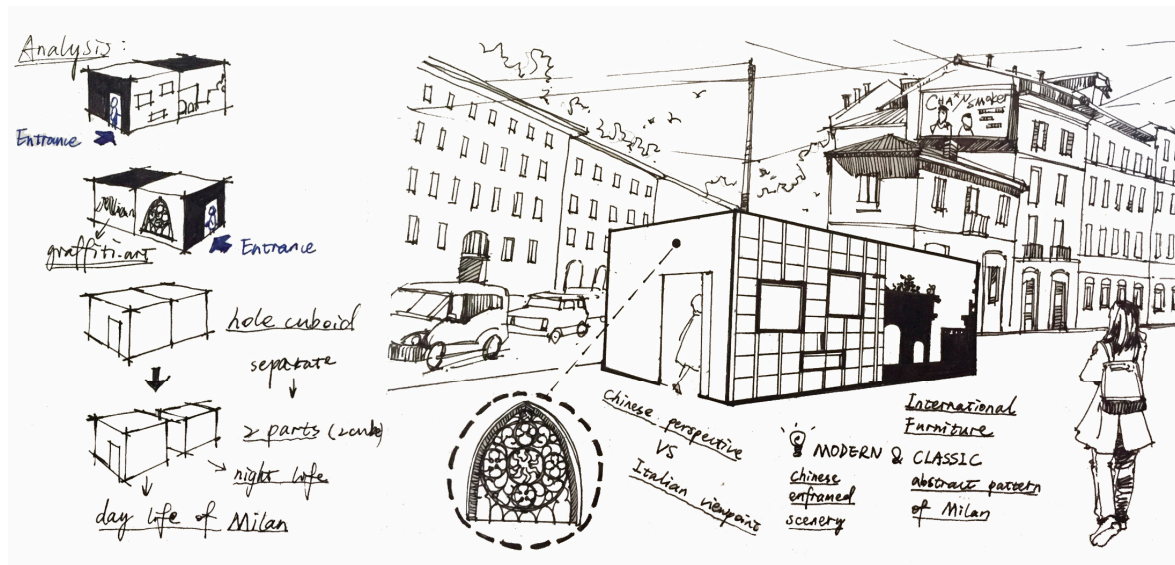 Analysis:
Entrance
Entrance
graffiti-art
hole cuboid
separate
2 parts (2cube)
night life
day life of Milan
chinese perspective
VS
Italian viewpoint
MODERN & CLASSIC
chinese
enframed
scenery
International
Furniture
abstract pattern
of Milan